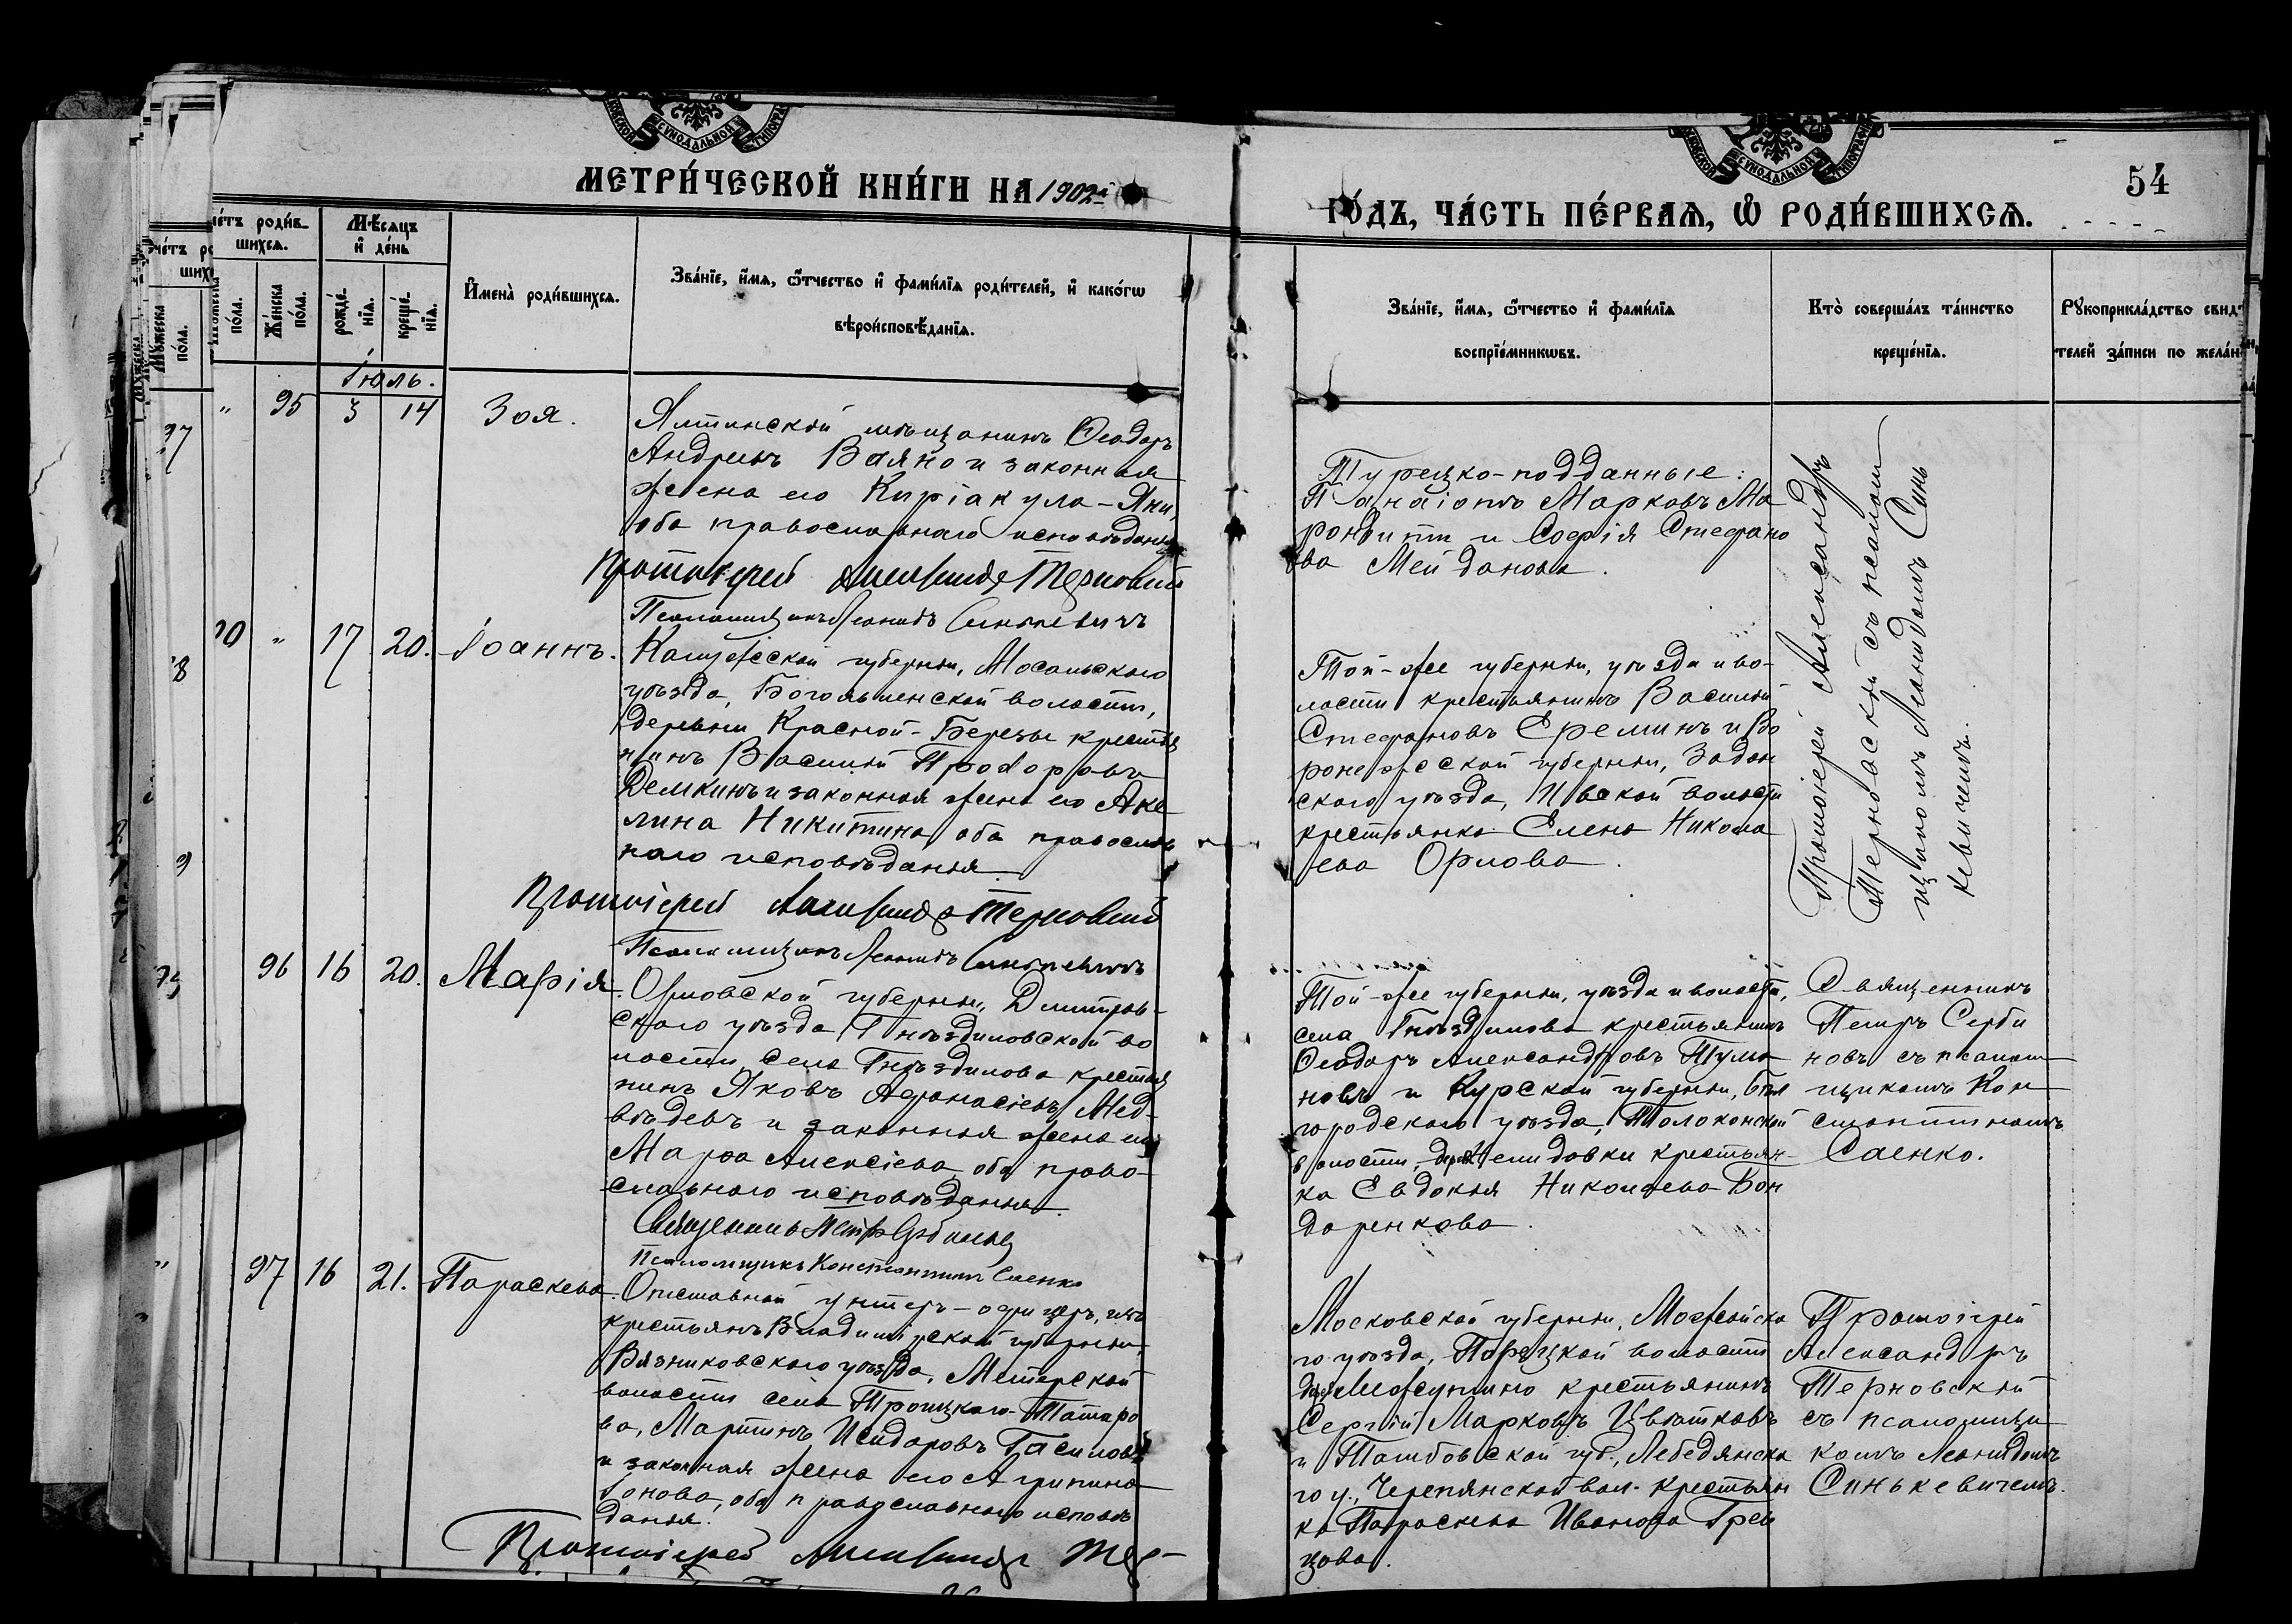 МЕТРИ́ЧЕСКОЙ КНИ́ГИ НА 1902й
ГО́ДЪ, ЧА́СТЬ ПЕ́РВАЯ, Ѿ РОДИ́ВШИХСЯ.
54
Мѣсяцъ и де́нь
рожде́нїя.
креще́нїя.
Же́нска по́ла.
Имена̀ роди́вшихся.
Зва́нїе, и́мя, ѻ҆́тчество и фами́лїя роди́телей, и како́гѡ
вѣроисповѣ́данїя.
Зва́нїе, и́мя, ѻ҆́тчество и фами́лїя
воспрїе́мникѡвъ.
Кто̀ соверша́лъ та́инство
креще́нїя.
Рꙋкоприкла́дство свид
телей за́писи по жела́н
Іюль.
" 95 3 14 Зоя.
Ялтинскій мѣщанинъ Ѳеодоръ
Андреевъ Ваяно и законная
жена его Киріакула-Яни,
оба православнаго исповѣданія
Протоіерей Александръ Терновскій
Псаломщикъ Леонидъ Синькевичъ
Турецко-подданные:
Панаіотъ Марковъ Ма
ронити и Софія Стефано
ва Мейданова.
Протоіерей Александръ
Терновскій съ псаломщ
щикомъ Леонидомъ Синь
кевичемъ.
" 17 20. Іоаннъ.
Калужской губерніи, Мосальскаго
уѣзда, волости,
деревни Красной-Березы крестья
нинъ Василій Прохоровъ
Демкинъ и законная жена его Аку
лина Никитина, оба православ
наго исповѣданія.
Протоіерей Александръ Терновскій
Псаломщикъ Леонидъ Синькевичъ
Той-же губерніи, уѣзда и во-
лости крестьянинъ Василій
Стефановъ Ереминъ и Во
ронежской губерніи, Задон
скаго уѣзда, волости
крестьянка Елена Никола
ева Орлова.
96 16 20. Марія.
Орловской губерніи, Дмитров-
скаго уѣзда Гнѣздиловской во
лости, села Гнѣздилова крестья
нинъ Яковъ Аѳанасіевъ Мед-
вѣдевъ и законная жена его
Марѳа Алексіева, оба право-
славнаго исповѣданія.
Священникъ Петръ Сербиновъ
Псаломщикъ Константинъ Саенко
Той-же губерніи, уѣзда и волости,
села Гнѣздилова крестьянинъ
Ѳеодоръ Александровъ Тума
новъ и Курской губерніи, Бѣл
городскаго уѣзда, Толоконской
волости, дер. Нелидовки крестьян-
ка Евдокія Николаева Бон
даренкова.
Священникъ
Петръ Серби
новъ съ псалом
щикомъ Кон
стантиномъ
Саенко.
" 97 16 21. Параскева.
Отставной унтеръ-офицеръ, изъ
крестьянъ Владимірской губерніи,
Вязниковскаго уѣзда, Мстерской
волости села Троицкаго-Татаро
ва, Мартинъ Исидоровъ Гасиловъ
и законная жена его Агрипина
оба православнаго исповѣ
данія.
Протоіерей Александръ Тер-
Московской губерніи, Можайска
го уѣзда, Порѣцкой волости
крестьянинъ
Сергій Марковъ Цвѣтковъ
и Тамбовской губ., Лебедянска
го у., Черепянской вол. крестьян
ка Параскева Иванова Грец
цова.
Протоіерей
Александръ
Терновскій
съ псаломщи
комъ Леонидомъ
Синькевичемъ.